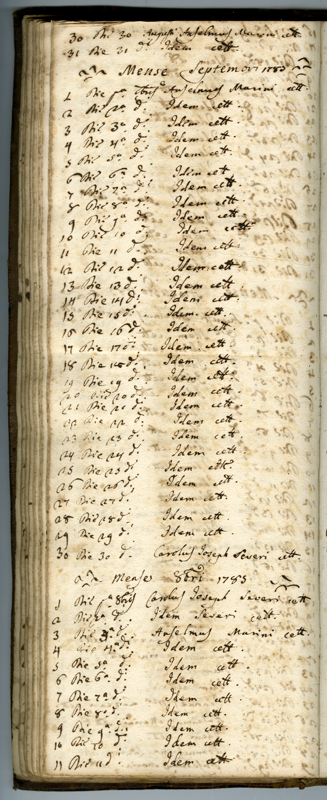 30 Die 30 Augusti Anselmus Marini cett.
31 Die 31 d: Idem cett.
Mense Septembr 1783
1 Die 1ª 7bris Anselmus Marini cett.
2 Die 2ª d: Idem cett.
3 Die 3ª d: Idem cett.
4 Die 4ª d: Idem cett.
5 Die 5ª d: Idem cett.
6 Die 6ª d: Idem cett.
7 Die 7ª d: Idem cett.
8 Die 8ª d: Idem cett.
9 Die 9ª d: Idem cett.
10 Die 10 d: Idem cett.
11 Die 11 d: Idem cett.
12 Die 12 d: Idem cett.
13 Die 13 d: Idem cett.
14 Die 14 d: Idem cett.
15 Die 15 d: Idem cett.
16 Die 16 d: Idem cett.
17 Die 17 d: Idem cett.
18 Die 18 d: Idem cett.
19 Die 19 d: Idem cett.
20 Die 20 d: Idem cett.
21 Die 21 d: Idem cett.
22 Die 22 d: Idem cett.
23 Die 23 d: Idem cett.
24 Die 24 d: Idem cett.
25 Die 25 d: Idem cett.
26 Die 26 d: Idem cett.
27 Die 27 d: Idem cett.
28 Die 28 d: Idem cett.
29 Die 29 d: Idem cett.
30 Die 30 d: Carolus Joseph Severi cett.
Mense 8bri 1783
1 Die 1ª 8bris Carolus Joseph Severi cett.
2 Die 2ª d: Idem Severi cett.
3 Die 3ª d: Anselmus Marini cett.
4 Die 4ª d: Idem cett.
5 Die 5ª d: Idem cett.
6 Die 6ª d: Idem cett.
7 Die 7ª d: Idem cett.
8 Die 8ª d: Idem cett.
9 Die 9ª d: Idem cett.
10 Die 10 d: Idem cett.
11 Die 11 d: Idem cett.